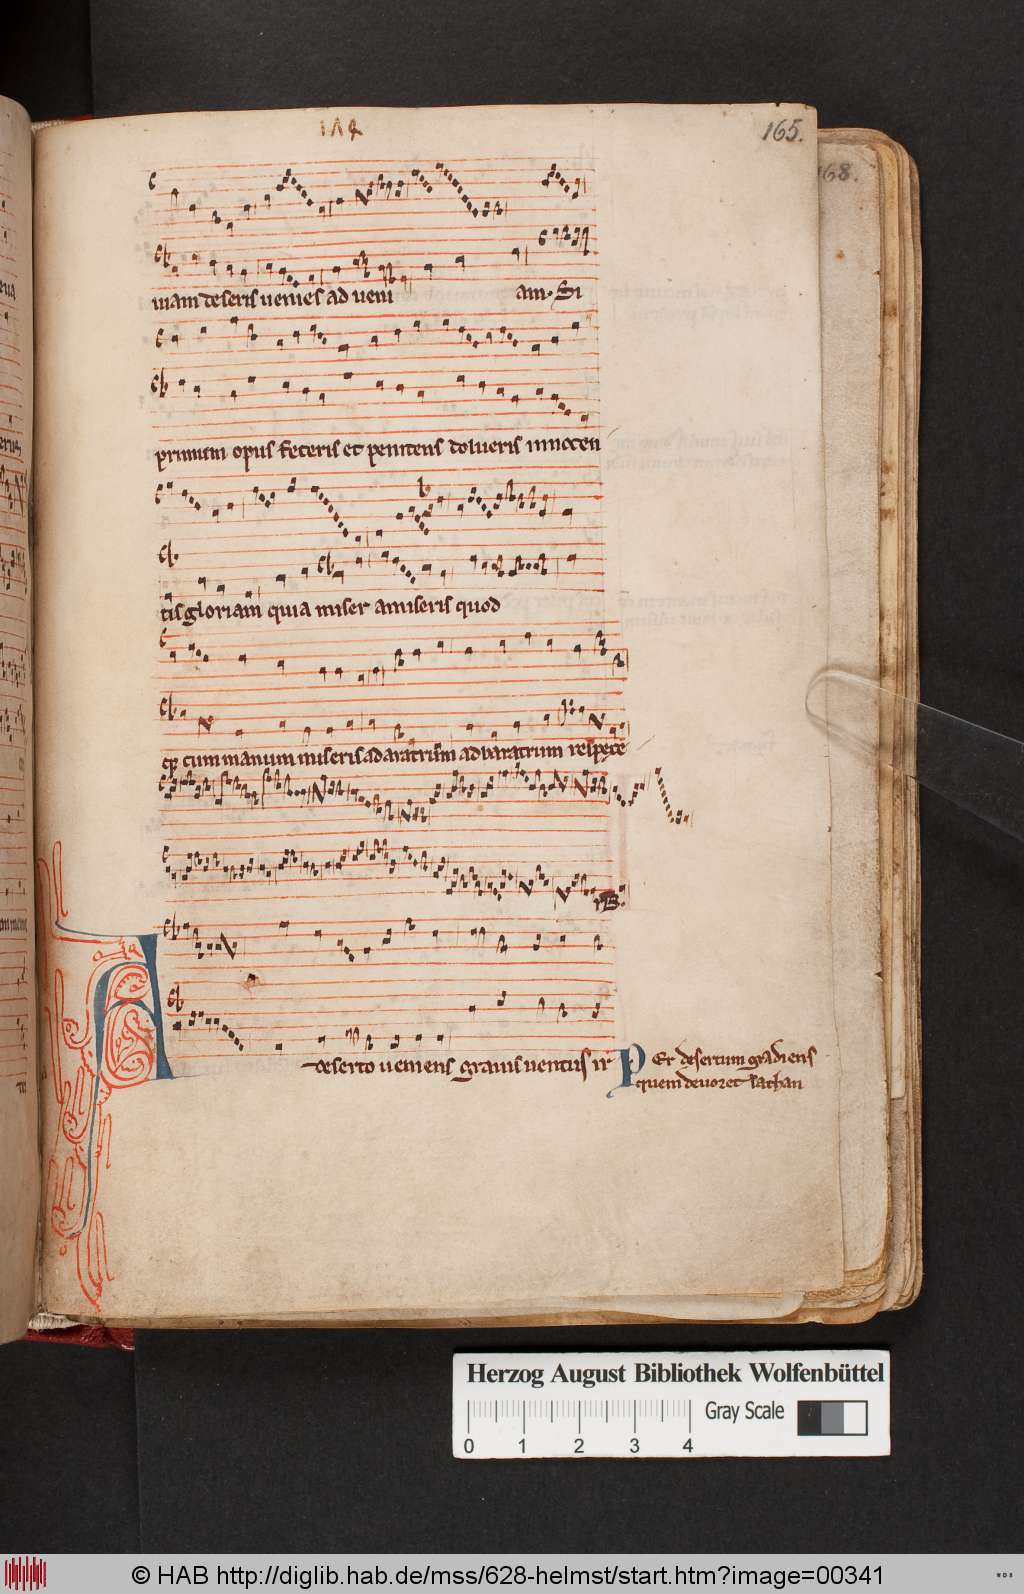 165.
168.
uiam deseris uenies ad ueni am. Si
primum opus feceris et penitens dolueris innocen
tis gloriam quia miser amiseris quod
cum manum miseris ad aratrum ad baratrum respice
A deserto ueniens grauis uentus ir
Per desertum gradiens
quem deuoret sathan
Herzog August Bibliothek Wolfenbüttel
Gray Scale
0 1 2 3 4
© HAB http://diglib.hab.de/mss/628-helmst/start.htm?image=00341